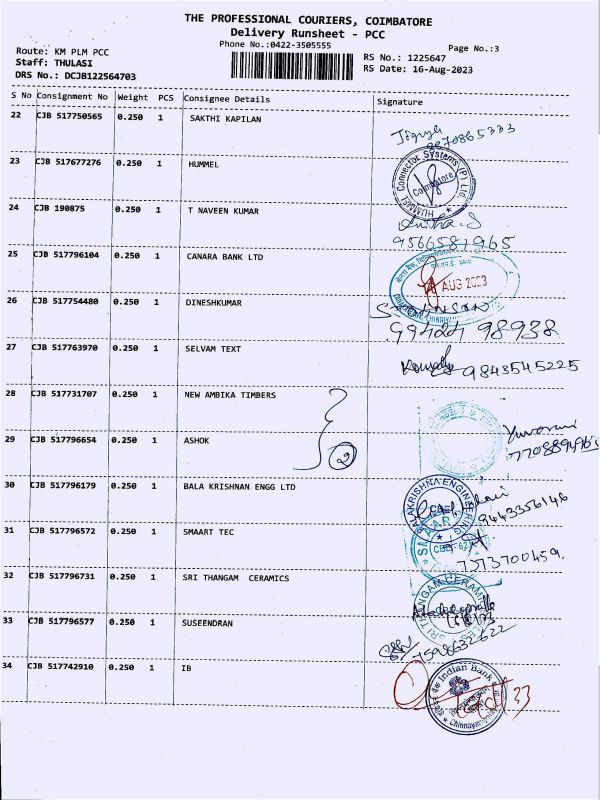 THE PROFESSIONAL COURIERS, COIMBATORE
Delivery Runsheet - PCC
Phone No.:0422-3505555
Page No.:3
Route: KM PLM PCC
Staff: THULASI
DRS No.: DCJB122564703
RS No.: 1225647
RS Date: 16-Aug-2023
S No Consignment No Weight PCS Consignee Details Signature
22 CJB 517750565 0.250 1 SAKTHI KAPILAN
23 CJB 517677276 0.250 1 HUMMEL
HUMMEL Connector Systems (P) Ltd. Coimbatore
24 CJB 190875 0.250 1 T NAVEEN KUMAR
9566581965
25 CJB 517796104 0.250 1 CANARA BANK LTD
AUG 2023
26 CJB 517754480 0.250 1 DINESHKUMAR
98938
27 CJB 517763970 0.250 1 SELVAM TEXT
9843545225
28 CJB 517731707 0.250 1 NEW AMBIKA TIMBERS
29 CJB 517796654 0.250 1 ASHOK
2
30 CJB 517796179 0.250 1 BALA KRISHNAN ENGG LTD
BALAKRISHNA ENGINEERING
9443356146
31 CJB 517796572 0.250 1 SMAART TEC
7373700459.
32 CJB 517796731 0.250 1 SRI THANGAM CERAMICS
SRI THANGAM CERAMICS
33 CJB 517796577 0.250 1 SUSEENDRAN
7598632622
34 CJB 517742910 0.250 1 IB
Indian Bank